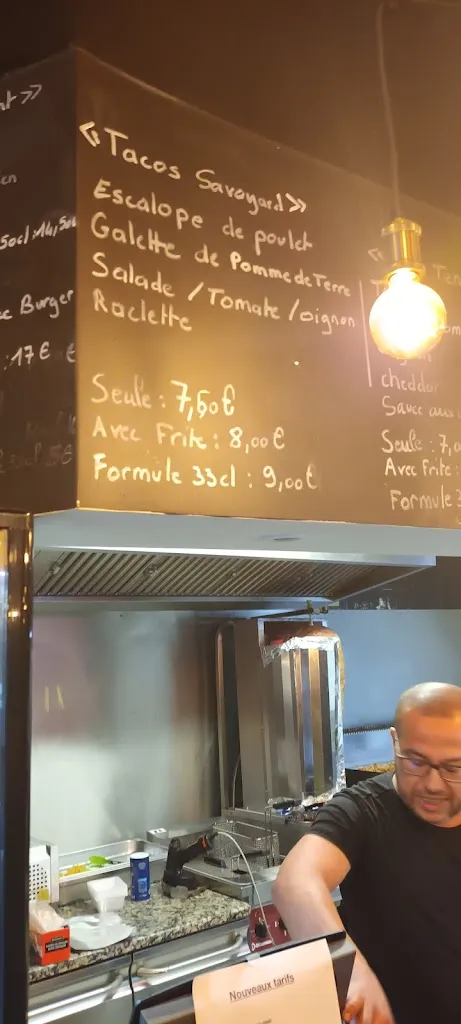 >>
14,50€
« Tacos Savoyard »
Escalope de poulet
Galette de Pomme de Terre
Salade / Tomate / oignon
Raclette
Seule : 7,50€
Avec Frite : 8,00€
Formule 33cl : 9,00€
Burger
: 17€
cheddar
Sauce
Seule : 7,0
Avec Frite :
Formule 3
Nouveaux tarifs